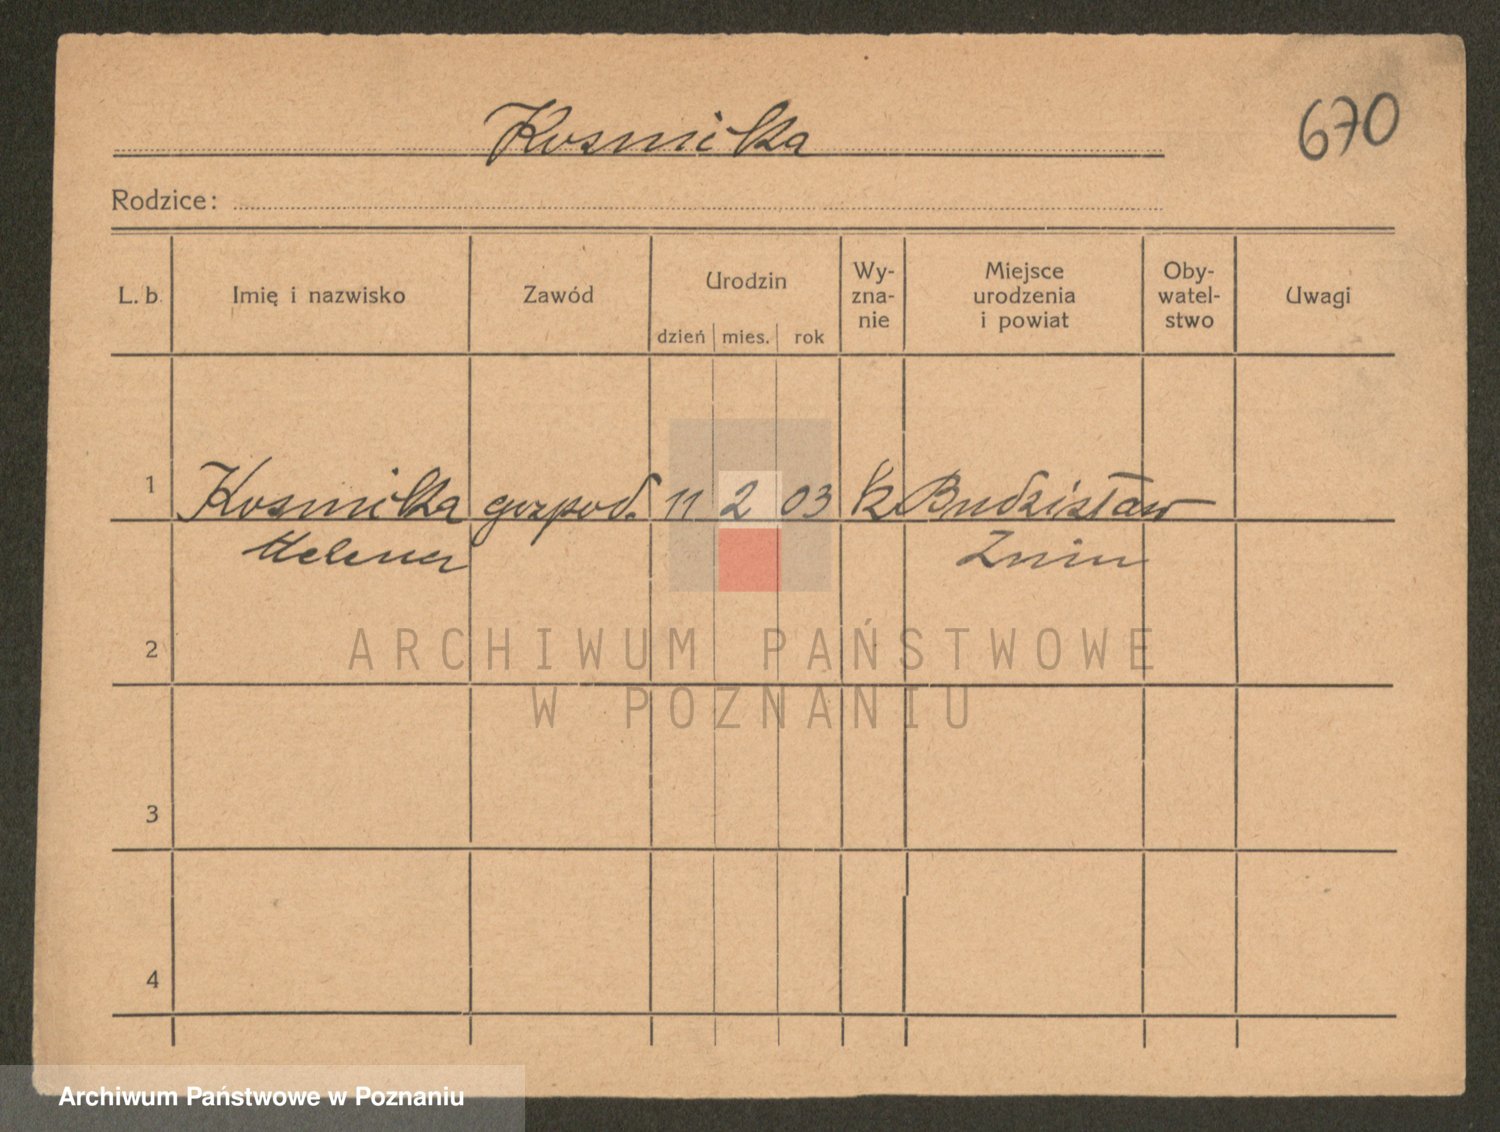 Kosmilka
670
Rodzice:
L. b. Imię i nazwisko Zawód Urodzin dzień mies. rok Wy-zna-nie Miejsce urodzenia i powiat Oby-watel-stwo Uwagi
1 Kosmilka gospod. 11 2 03 k Budzisław
Helena Żnin
2
ARCHIWUM PAŃSTWOWE
W POZNANIU
3
4
Archiwum Państwowe w Poznaniu